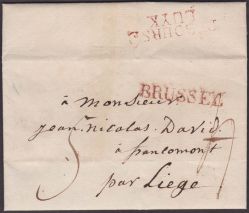 LUYK
BRUSSEL
à Monsieur
jean nicolas David
à francomont
par Liege